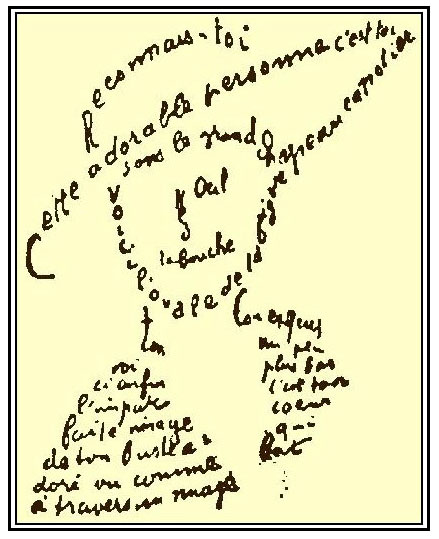 Reconnais-toi
Cette adorable personne c'est toi
sous le grand chapeau canotier
Oeil
nez
la bouche
Voici l'ovale de ta figure
ton
Cou exquis
voi
ci enfin
l'impar
faite image
de ton buste a
doré vu comme
à travers un nuage
un peu
plus bas
c'est ton
coeur
qui
bat